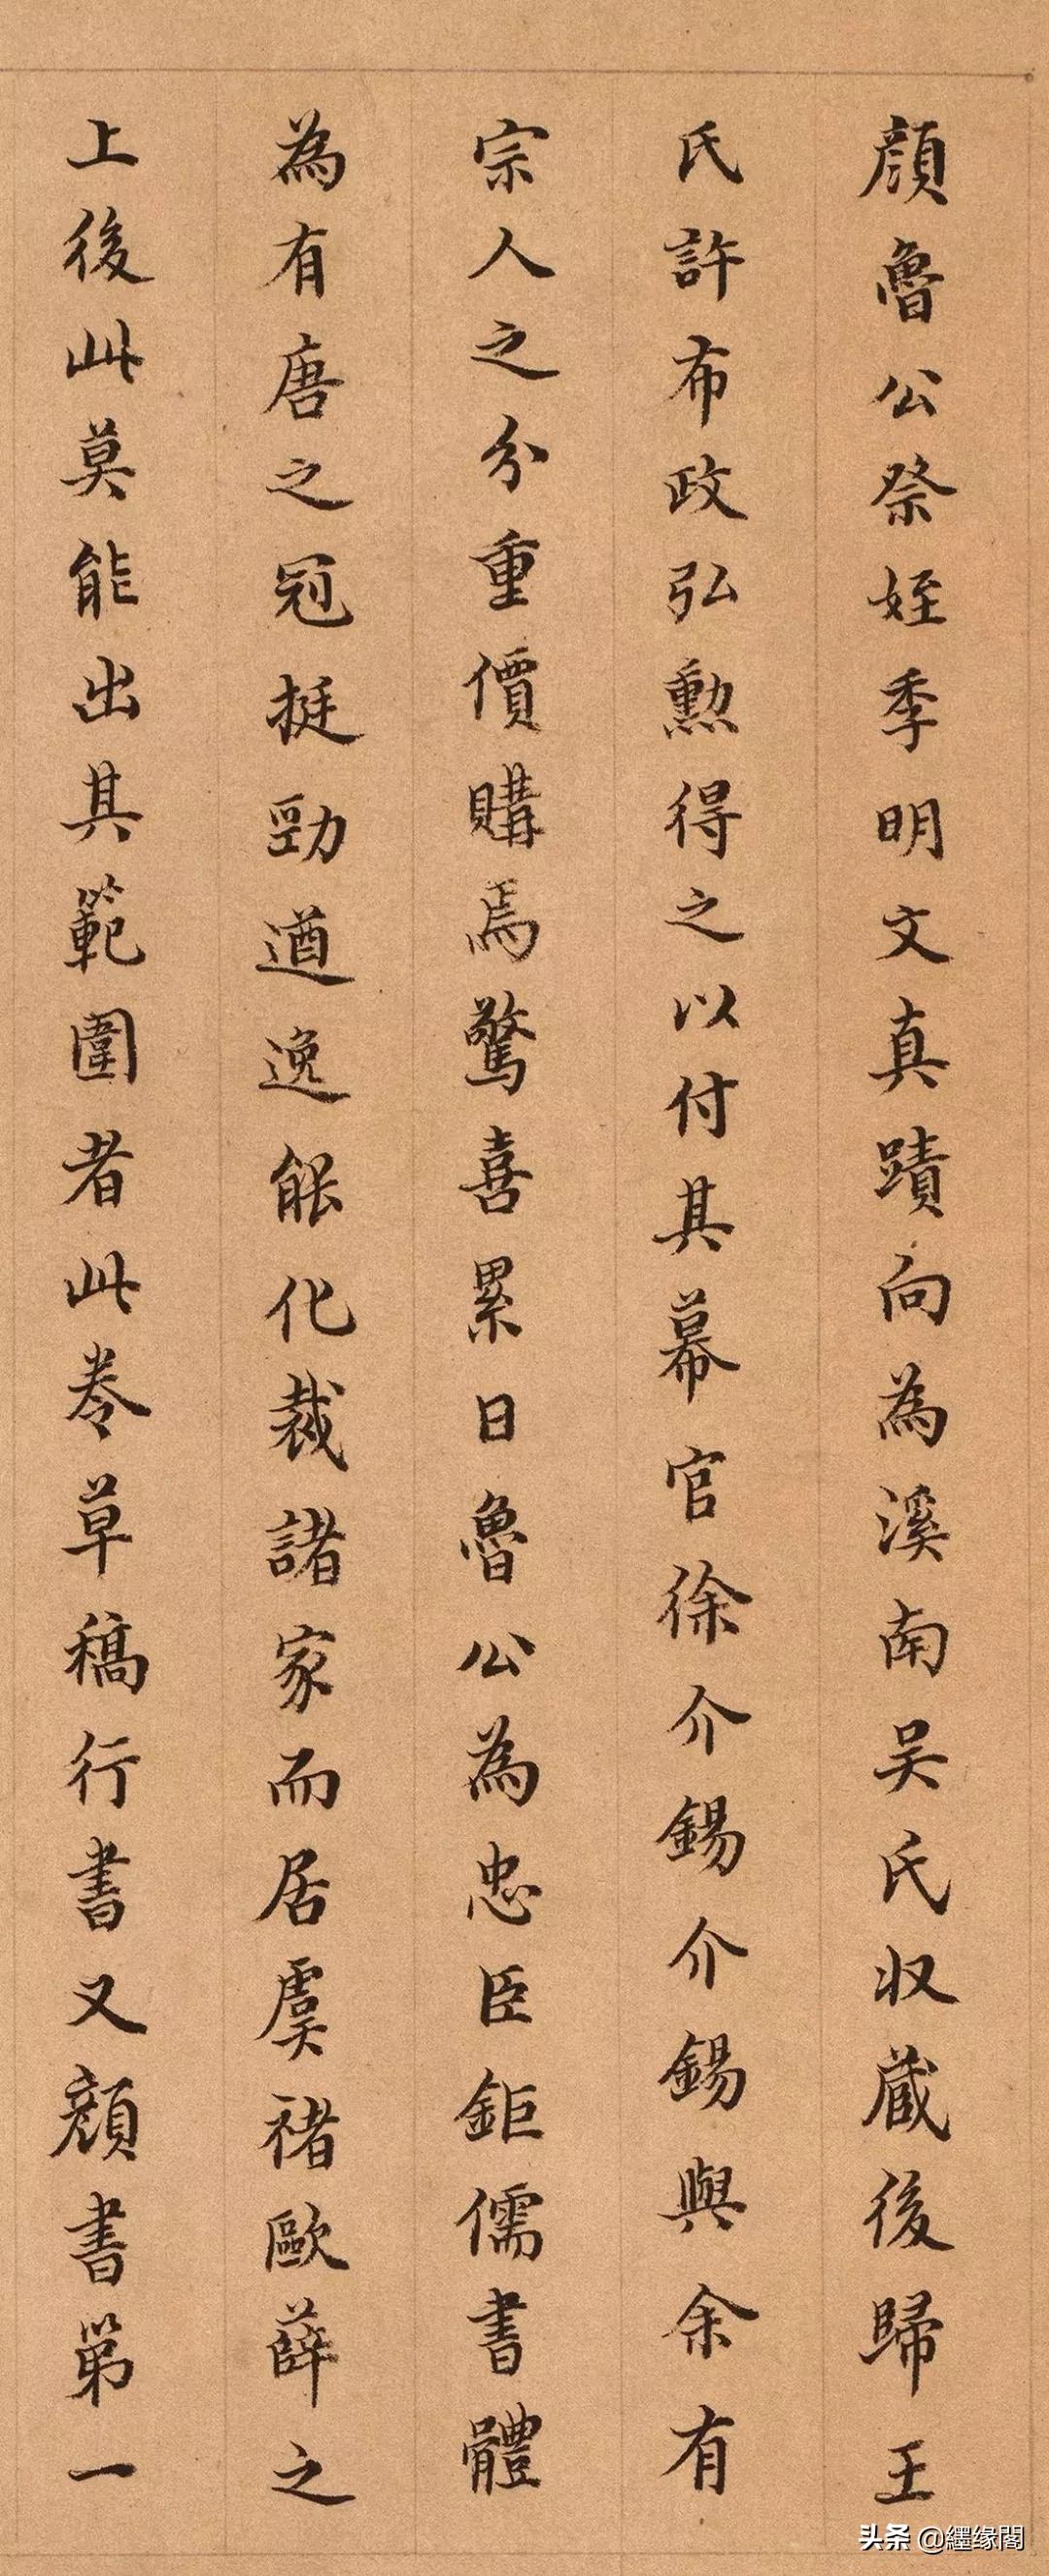 顔魯公祭姪季明文真蹟向為溪南吴氏収蔵後歸王
氏許布政弘勲得之以付其幕官徐介錫介錫與余有
宗人之分重價購焉驚喜累日魯公為忠臣鉅儒書體
為有唐之冠挺勁遒逸能化裁諸家而居虞褚歐薛之
上後此莫能出其範圍者此卷草稿行書又顔書第一
头条 @纆缘閣